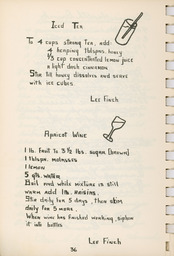 Iced Tea
To 4 cups strong Tea, add:
4 heaping tblspns. honey
1/3 cup concentrated lemon juice
a light dash cinnamon
Stir till honey dissolves and serve
with ice cubes.
Lee Finch
Apricot Wine
1 lb. fruit to 3 1/2 lbs. sugar (brown)
1 tblspn. molasses
1 lemon
5 qts. water
Boil and while mixture is still
warm add 1 lb. raisins.
Stir daily for 5 days, then skim
daily for 5 more.
When wine has finished working, siphon
it into bottles
Lee Finch
36